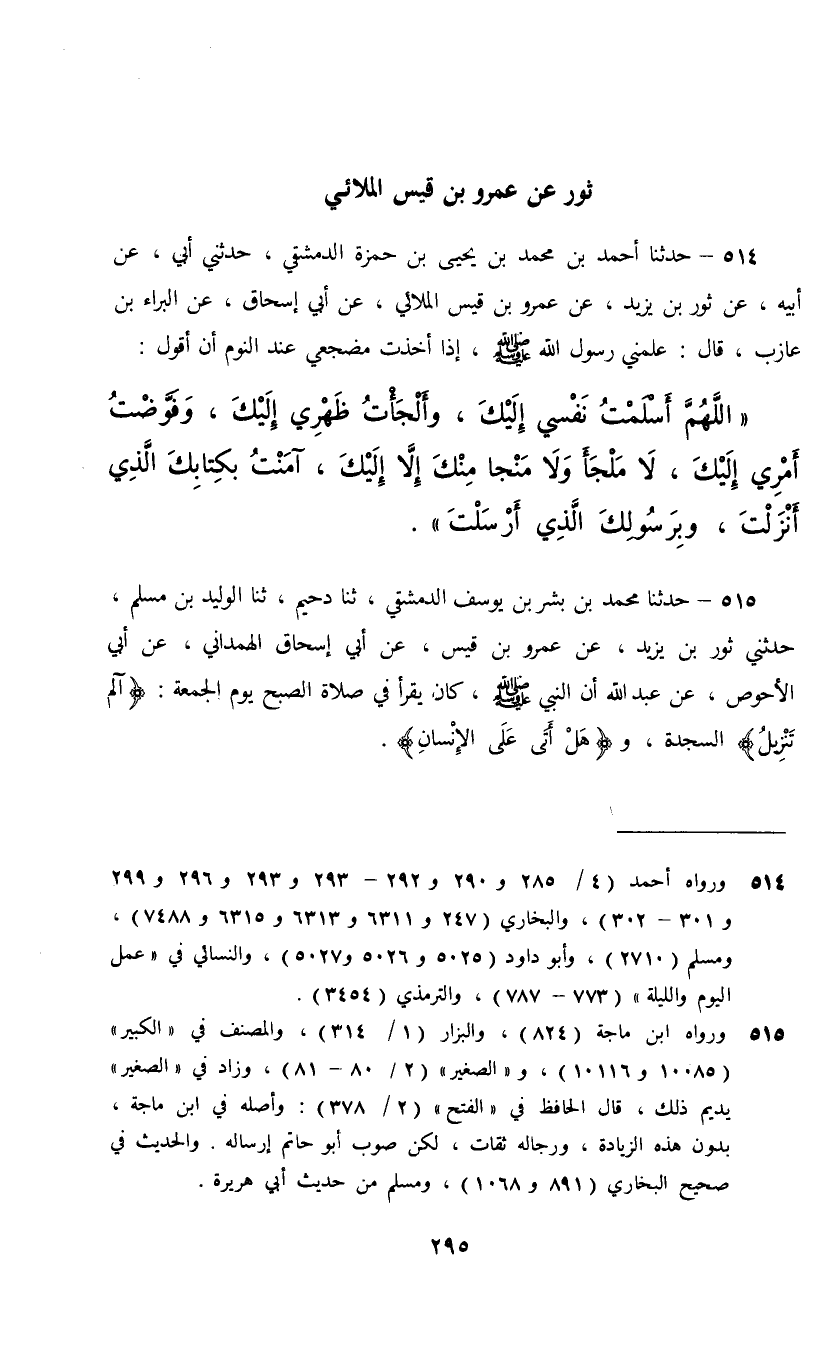 ثور عن عمرو بن قيس الملائي
٥١٤ – حدثنا أحمد بن محمد بن يحيى بن حمزة الدمشقي ، حدثني أبي ، عن
أبيه ، عن ثور بن يزيد ، عن عمرو بن قيس الملائي ، عن أبي إسحاق ، عن البراء بن
عازب ، قال : علمني رسول الله ﷺ ، إذا أخذت مضجعي عند النوم أن أقول :
« اللَّهُمَّ أَسْلَمْتُ نَفْسي إِلَيْكَ ، وأَلْجَأْتُ ظَهْرِي إِلَيْكَ ، وَفَوَّضْتُ
أَمْرِي إِلَيْكَ ، لَا مَلْجَأَ وَلَا مَنْجا مِنْكَ إِلَّا إِلَيْكَ ، آمَنْتُ بكِتابِكَ الَّذِي
أَنْزَلْتَ ، وبِرَسُولِكَ الَّذِي أَرْسَلْتَ » .
٥١٥ – حدثنا محمد بن بشر بن يوسف الدمشقي ، ثنا دحيم ، ثنا الوليد بن مسلم ،
حدثني ثور بن يزيد ، عن عمرو بن قيس ، عن أبي إسحاق الهمداني ، عن أبي
الأحوص ، عن عبد الله أن النبي ﷺ ، كان يقرأ في صلاة الصبح يوم الجمعة : ﴿ آلم
تَنْزِيلُ ﴾ السجدة ، و ﴿ هَلْ أَتَى عَلَى الإِنْسانِ ﴾ .
٥١٤ ورواه أحمد ( ٤ / ٢٨٥ و ٢٩٠ و ٢٩٢ – ٢٩٣ و ٢٩٣ و ٢٩٦ و ٢٩٩
و ٣٠١ – ٣٠٢ ) ، والبخاري ( ٢٤٧ و ٦٣١١ و ٦٣١٣ و ٦٣١٥ و ٧٤٨٨ ) ،
ومسلم ( ٢٧١٠ ) ، وأبو داود ( ٥٠٢٥ و ٥٠٢٦ و٥٠٢٧ ) ، والنسائي في « عمل
اليوم والليلة » ( ٧٧٣ – ٧٨٧ ) ، والترمذي ( ٣٤٥٤ ) .
٥١٥ ورواه ابن ماجة ( ٨٢٤ ) ، والبزار ( ١ / ٣١٤ ) ، والمصنف في « الكبير »
( ١٠٠٨٥ و ١٠١١٦ ) ، و « الصغير » ( ٢ / ٨٠ – ٨١ ) ، وزاد في « الصغير »
يديم ذلك ، قال الحافظ في « الفتح » ( ٢ / ٣٧٨ ) : وأصله في ابن ماجة ،
بدون هذه الزيادة ، ورجاله ثقات ، لكن صوب أبو حاتم إرساله . والحديث في
صحيح البخاري ( ٨٩١ و ١٠٦٨ ) ، ومسلم من حديث أبي هريرة .
٢٩٥